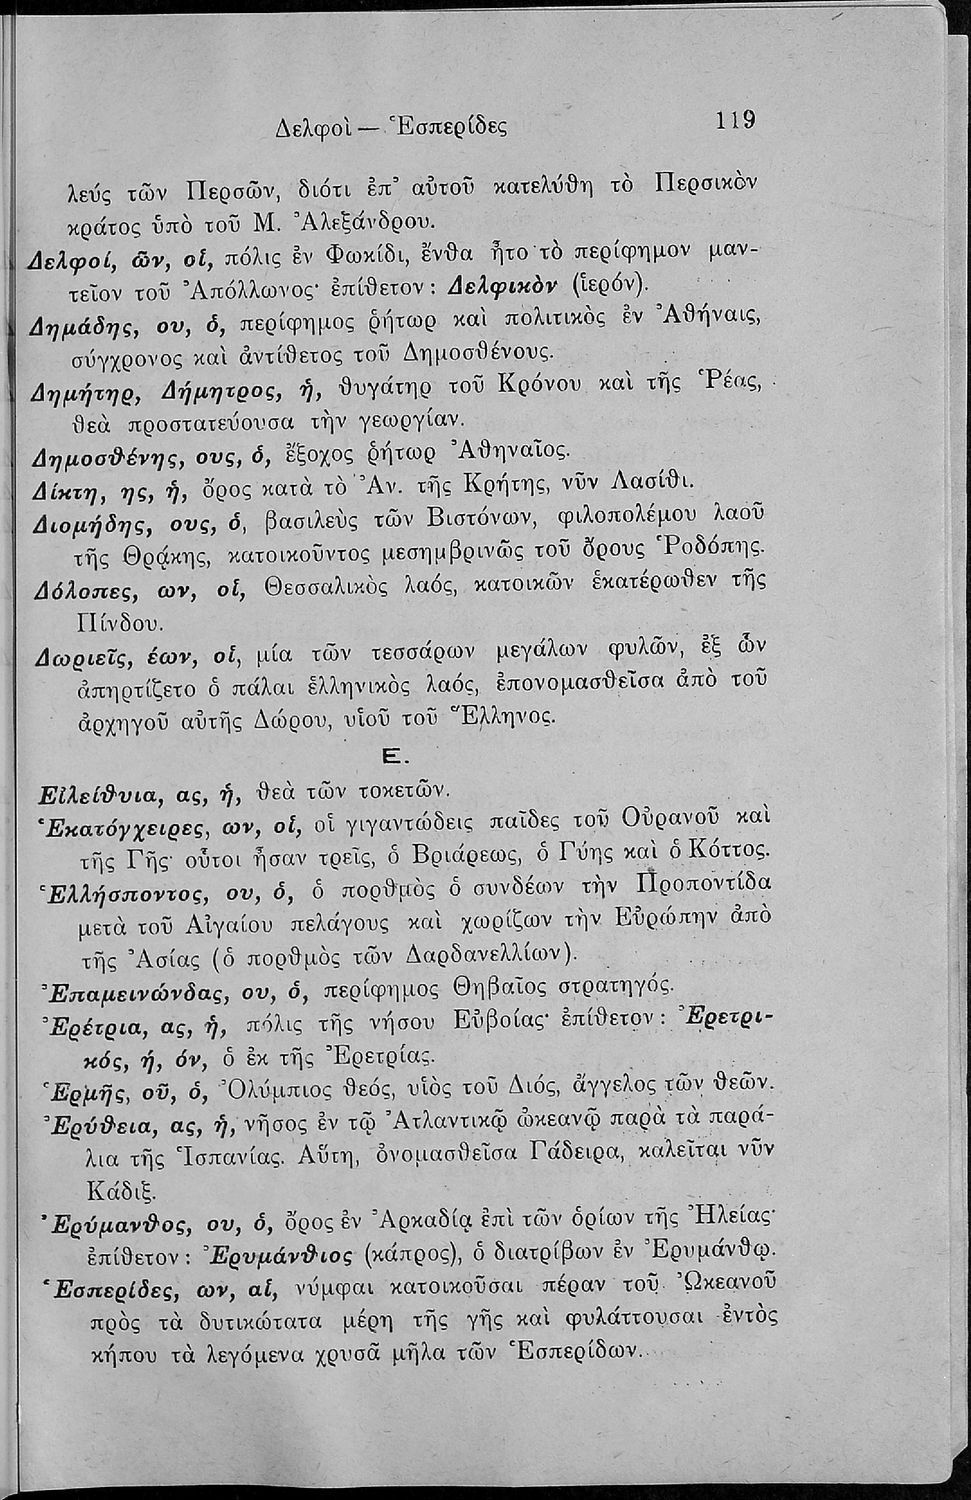 Δελφοὶ — Ἑσπερίδες 119
λεύς τῶν Περσῶν, διότι ἐπ’ αὐτοῦ κατελύθη τὸ Περσικὸν
κράτος ὑπὸ τοῦ Μ. Ἀλεξάνδρου.
Δελφοί, ῶν, οἱ, πόλις ἐν Φωκίδι, ἔνθα ἦτο τὸ περίφημον μαν-
τεῖον τοῦ Ἀπόλλωνος· ἐπίθετον: Δελφικὸν (ἱερόν).
Δημάδης, ου, ὁ, περίφημος ῥήτωρ καὶ πολιτικὸς ἐν Ἀθήναις,
σύγχρονος καὶ ἀντίθετος τοῦ Δημοσθένους.
Δημήτηρ, Δήμητρος, ἡ, θυγάτηρ τοῦ Κρόνου καὶ τῆς Ῥέας,
θεὰ προστατεύουσα τὴν γεωργίαν.
Δημοσθένης, ους, ὁ, ἔξοχος ῥήτωρ Ἀθηναῖος.
Δίκτη, ης, ἡ, ὄρος κατὰ τὸ Ἀν. τῆς Κρήτης, νῦν Λασίθι.
Διομήδης, ους, ὁ, βασιλεὺς τῶν Βιστόνων, φιλοπολέμου λαοῦ
τῆς Θρᾴκης, κατοικοῦντος μεσημβρινῶς τοῦ ὄρους Ῥοδόπης.
Δόλοπες, ων, οἱ, Θεσσαλικὸς λαός, κατοικῶν ἑκατέρωθεν τῆς
Πίνδου.
Δωριεῖς, έων, οἱ, μία τῶν τεσσάρων μεγάλων φυλῶν, ἐξ ὧν
ἀπηρτίζετο ὁ πάλαι ἑλληνικὸς λαός, ἐπονομασθεῖσα ἀπὸ τοῦ
ἀρχηγοῦ αὐτῆς Δώρου, υἱοῦ τοῦ Ἕλληνος.
Ε.
Εἰλείθυια, ας, ἡ, θεὰ τῶν τοκετῶν.
Ἑκατόγχειρες, ων, οἱ, οἱ γιγαντώδεις παῖδες τοῦ Οὐρανοῦ καὶ
τῆς Γῆς· οὗτοι ἦσαν τρεῖς, ὁ Βριάρεως, ὁ Γύης καὶ ὁ Κόττος.
Ἑλλήσποντος, ου, ὁ, ὁ πορθμὸς ὁ συνδέων τὴν Προποντίδα
μετὰ τοῦ Αἰγαίου πελάγους καὶ χωρίζων τὴν Εὐρώπην ἀπὸ
τῆς Ἀσίας (ὁ πορθμὸς τῶν Δαρδανελλίων).
Ἐπαμεινώνδας, ου, ὁ, περίφημος Θηβαῖος στρατηγός.
Ἐρέτρια, ας, ἡ, πόλις τῆς νήσου Εὐβοίας· ἐπίθετον: Ἐρετρι-
κός, ή, όν, ὁ ἐκ τῆς Ἐρετρίας.
Ἑρμῆς, οῦ, ὁ, Ὀλύμπιος θεός, υἱὸς τοῦ Διός, ἄγγελος τῶν θεῶν.
Ἐρύθεια, ας, ἡ, νῆσος ἐν τῷ Ἀτλαντικῷ ὠκεανῷ παρὰ τὰ παρά-
λια τῆς Ἱσπανίας. Αὕτη, ὀνομασθεῖσα Γάδειρα, καλεῖται νῦν
Κάδιξ.
Ἐρύμανθος, ου, ὁ, ὄρος ἐν Ἀρκαδίᾳ ἐπὶ τῶν ὁρίων τῆς Ἠλείας·
ἐπίθετον: Ἐρυμάνθιος (κάπρος), ὁ διατρίβων ἐν Ἐρυμάνθῳ.
Ἑσπερίδες, ων, αἱ, νύμφαι κατοικοῦσαι πέραν τοῦ Ὠκεανοῦ
πρὸς τὰ δυτικώτατα μέρη τῆς γῆς καὶ φυλάττουσαι ἐντὸς
κήπου τὰ λεγόμενα χρυσᾶ μῆλα τῶν Ἑσπερίδων.